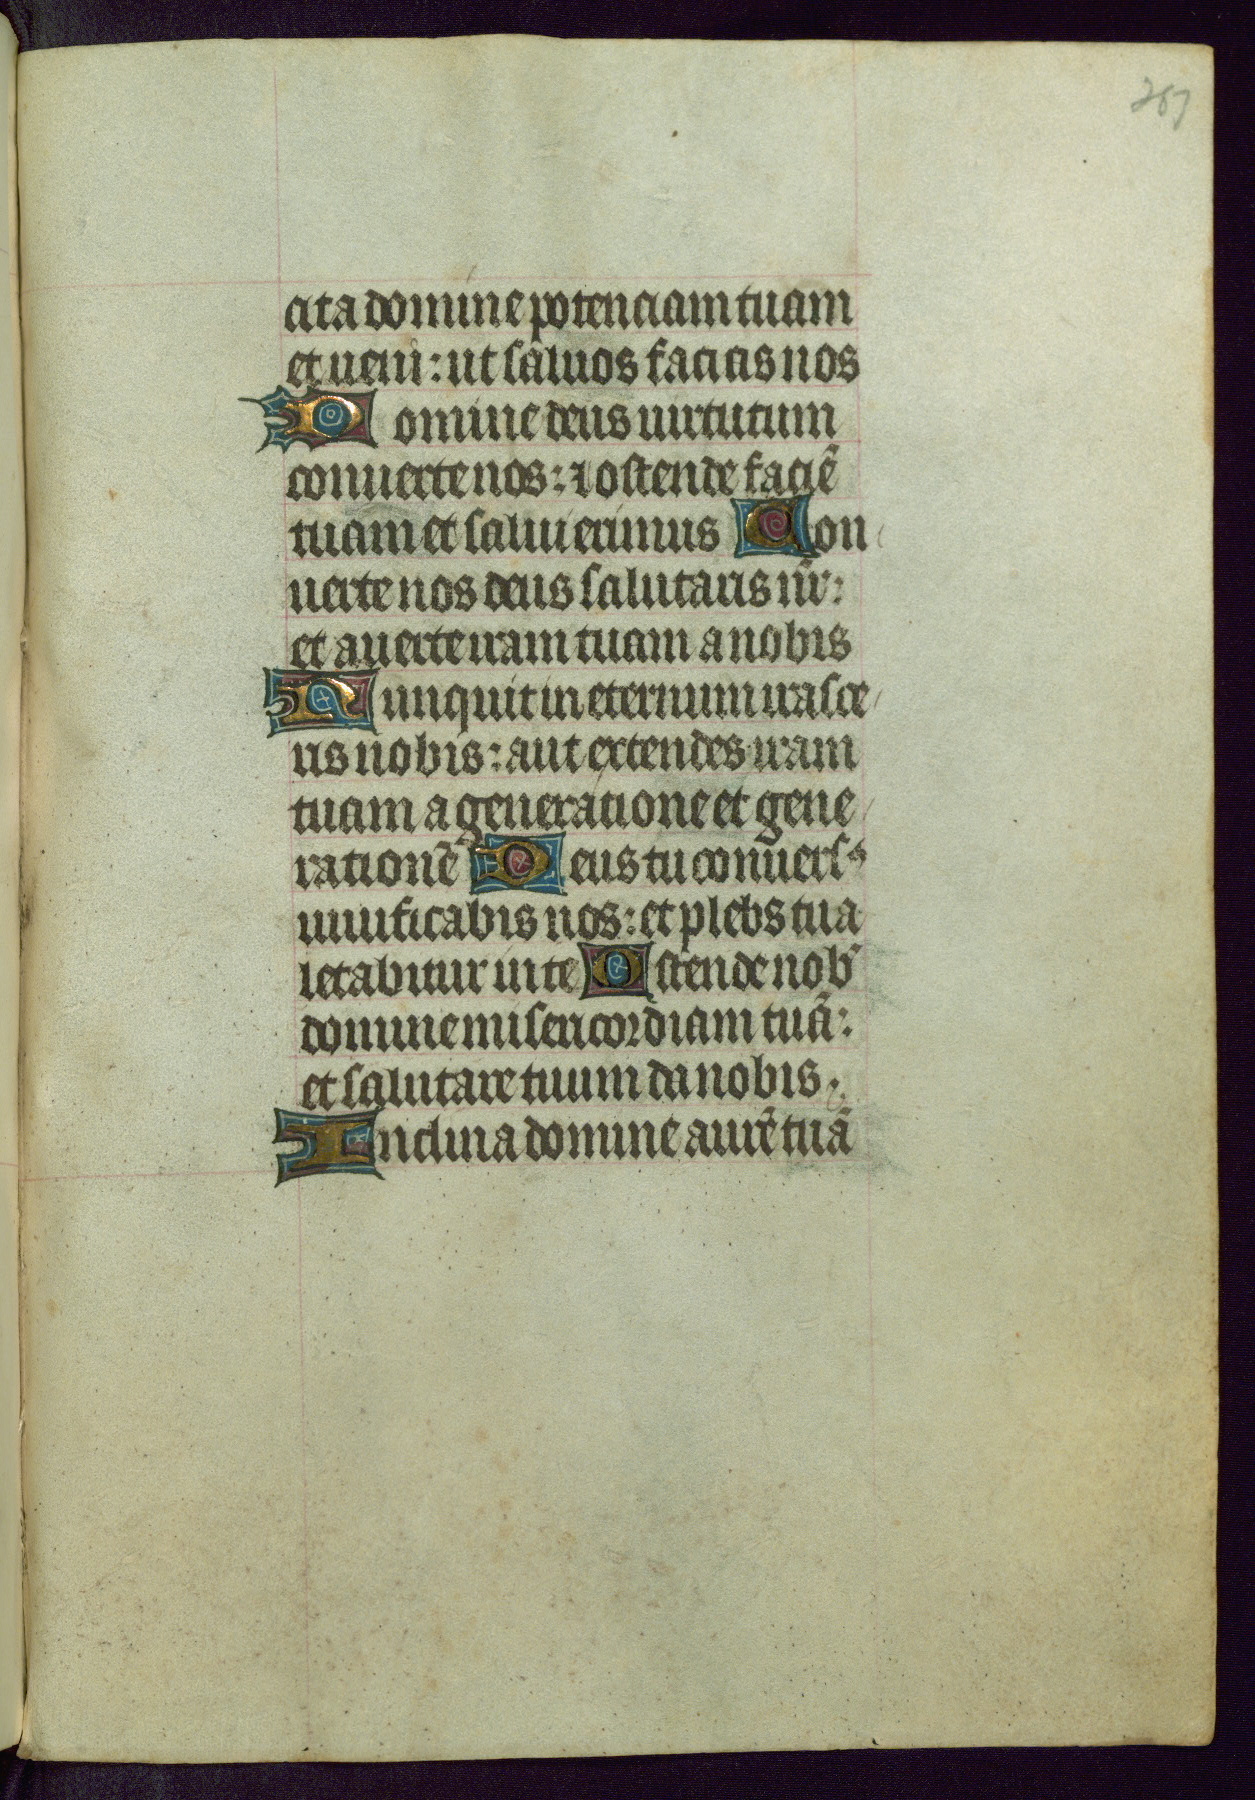 267
cita domine potenciam tuam
et ueni: ut saluos facias nos
Domine deus uirtutum
conuerte nos: ⁊ ostende faciē
tuam et salui erimus Con
uerte nos deus salutaris nr̄:
et auerte iram tuam a nobis
Nunquit in eternum irasce
ris nobis: aut extendes iram
tuam a generatione et gene
rationē Deus tu conuersꝰ
uiuificabis nos: et plebs tua
letabitur in te Ostende nob̄
domine misericordiam tuā:
et salutare tuum da nobis.
Inclina domine aurē tuā